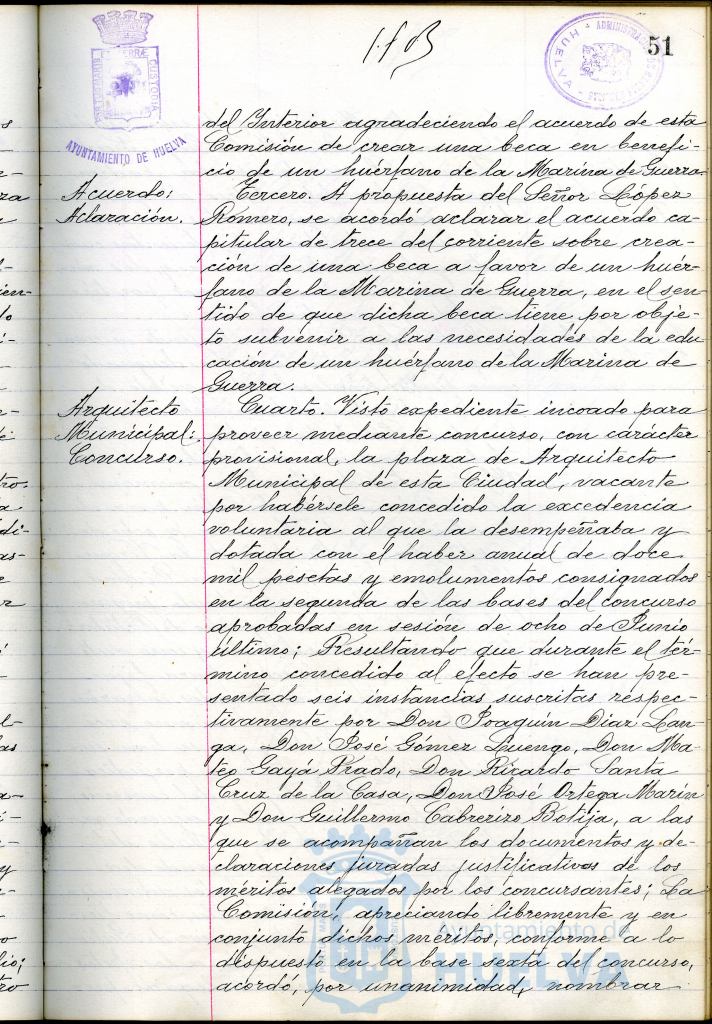 51
AYUNTAMIENTO DE HUELVA
del Interior agradeciendo el acuerdo de esta
Comisión de crear una beca en benefi-
cio de un huérfano de la Marina de Guerra.
Acuerdo:
Aclaración.
Tercero. A propuesta del Señor López
Romero, se acordó aclarar el acuerdo ca-
pitular de trece del corriente sobre crea-
ción de una beca a favor de un huér-
fano de la Marina de Guerra, en el sen-
tido de que dicha beca tiene por obje-
to subvenir a las necesidades de la edu-
cación de un huérfano de la Marina de
Guerra.
Arquitecto
Municipal:
Concurso.
Cuarto. Visto expediente incoado para
proveer mediante concurso, con carácter
provisional, la plaza de Arquitecto
Municipal de esta Ciudad, vacante
por habérsele concedido la excedencia
voluntaria al que la desempeñaba y
dotada con el haber anual de doce
mil pesetas y emolumentos consignados
en la segunda de las bases del concurso
aprobadas en sesión de ocho de Junio
último; Resultando que durante el tér-
mino concedido al efecto se han pre-
sentado seis instancias suscritas respec-
tivamente por Don Joaquín Díaz Lan-
ga, Don José Gómez Luengo, Don Ma-
teo Gayá Prado, Don Ricardo Santa
Cruz de la Casa, Don José Ortega Marín
y Don Guillermo Cabrerizo Botija, a las
que se acompañan los documentos y de-
claraciones juradas justificativas de los
méritos alegados por los concursantes; La
Comisión, apreciando libremente y en
conjunto dichos méritos, conforme a lo
dispuesto en la base sexta del concurso,
acordó, por unanimidad, nombrar
Ayuntamiento de
HUELVA